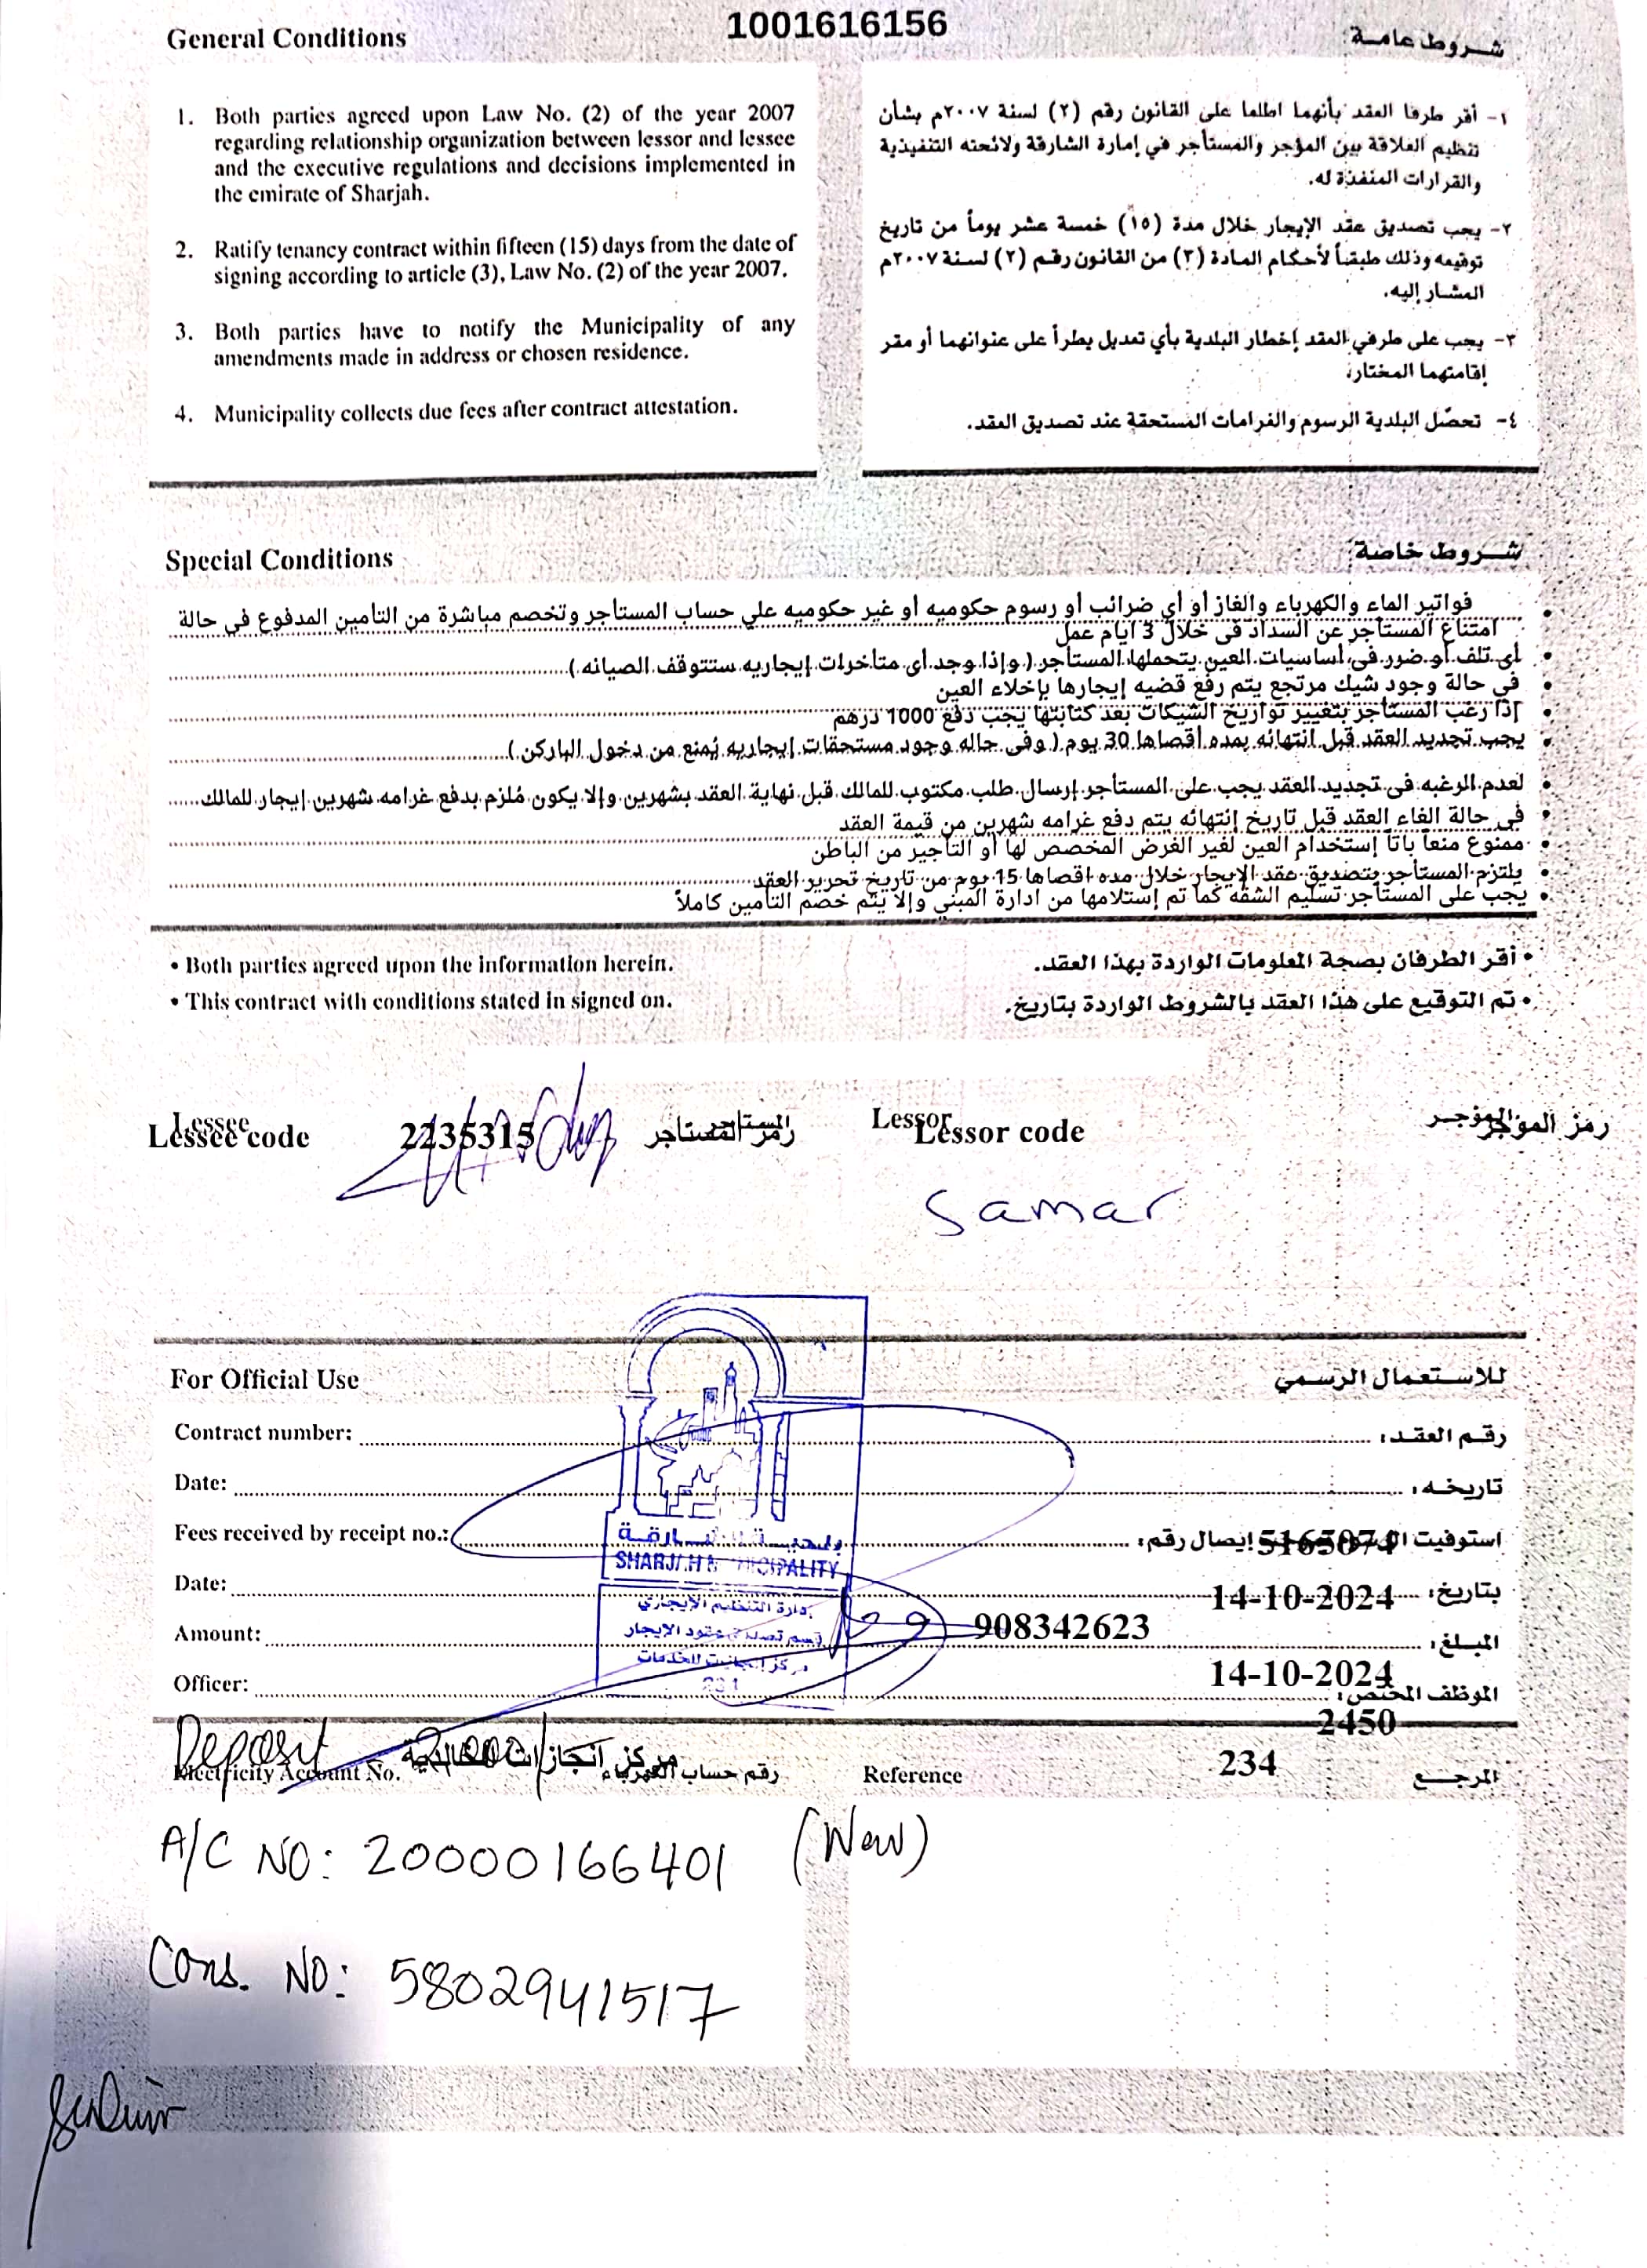 1001616156
General Conditions
شروط عامة
1. Both parties agreed upon Law No. (2) of the year 2007
regarding relationship organization between lessor and lessee
and the executive regulations and decisions implemented in
the emirate of Sharjah.
2. Ratify tenancy contract within fifteen (15) days from the date of
signing according to article (3), Law No. (2) of the year 2007.
3. Both parties have to notify the Municipality of any
amendments made in address or chosen residence.
4. Municipality collects due fees after contract attestation.
١- أقر طرفا العقد بأنهما اطلعا على القانون رقم (٢) لسنة ٢٠٠٧م بشأن
تنظيم العلاقة بين المؤجر والمستأجر في إمارة الشارقة ولائحته التنفيذية
والقرارات المنفذة له.
٢- يجب تصديق عقد الإيجار خلال مدة (١٥) خمسة عشر يوماً من تاريخ
توقيعه وذلك طبقاً لأحكام المادة (٣) من القانون رقم (٢) لسنة ٢٠٠٧م
المشار إليه.
٣- يجب على طرفي العقد إخطار البلدية بأي تعديل يطرأ على عنوانهما أو مقر
إقامتهما المختار.
٤- تحصّل البلدية الرسوم والغرامات المستحقة عند تصديق العقد.
Special Conditions
شروط خاصة
• فواتير الماء والكهرباء والغاز أو أي ضرائب أو رسوم حكوميه أو غير حكوميه علي حساب المستأجر وتخصم مباشرة من التأمين المدفوع فى حالة
امتناع المستأجر عن السداد فى خلال 3 ايام عمل
• أى تلف أو ضرر فى أساسيات العين يتحملها المستأجر ( وإذا وجد أى متأخرات إيجاريه ستتوقف الصيانه )
• في حالة وجود شيك مرتجع يتم رفع قضيه إيجارها بإخلاء العين
• إذا رغب المستأجر بتغيير تواريخ الشيكات بعد كتابتها يجب دفع 1000 درهم
• يجب تجديد العقد قبل انتهائه بمده أقصاها 30 يوم ( وفى حاله وجود مستحقات إيجاريه يُمنع من دخول الباركن )
• لعدم الرغبه فى تجديد العقد يجب على المستأجر إرسال طلب مكتوب للمالك قبل نهاية العقد بشهرين وإلا يكون مُلزم بدفع غرامه شهرين إيجار للمالك
• فى حالة الغاء العقد قبل تاريخ إنتهائه يتم دفع غرامه شهرين من قيمة العقد
• ممنوع منعاً باتاً إستخدام العين لغير الغرض المخصص لها أو التأجير من الباطن
• يلتزم المستأجر بتصديق عقد الإيجار خلال مده اقصاها 15 يوم من تاريخ تحرير العقد
• يجب على المستأجر تسليم الشقه كما تم إستلامها من ادارة المبنى وإلا يتم خصم التأمين كاملاً
• Both parties agreed upon the information herein.
• أقر الطرفان بصحة المعلومات الواردة بهذا العقد.
• This contract with conditions stated in signed on.
• تم التوقيع على هذا العقد بالشروط الواردة بتاريخ.
Lessee
المستأجر
Lessor
المؤجر
Lessee code 2235315 رمز المستأجر
Lessor code رمز المؤجر
Samar
For Official Use
للاستعمال الرسمي
Contract number: رقم العقد:
Date: تاريخه:
Fees received by receipt no.: استوفيت الرسوم إيصال رقم:
5165074
Date: 14-10-2024 بتاريخ:
Amount: 908342623 المبلغ:
14-10-2024
Officer: الموظف المختص:
2450
بلدية الشارقة
SHARJAH MUNICIPALITY
إدارة التنظيم الإيجاري
قسم تصديق عقود الإيجار
مركز إنجازات للخدمات
Deposit 2000/
مركز إنجازات الخالدية
Electricity Account No. رقم حساب الكهرباء
Reference 234 المرجع
A/C NO: 20000166401 (New)
Cons. NO: 5802941517